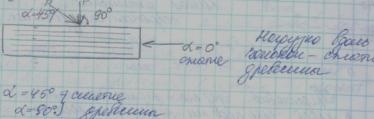 α=45°
90°
α=0°
сжатие
Нагрузка вдоль
волокон - сжатие
древесины
α=45° } смятие
α=90° } древесины